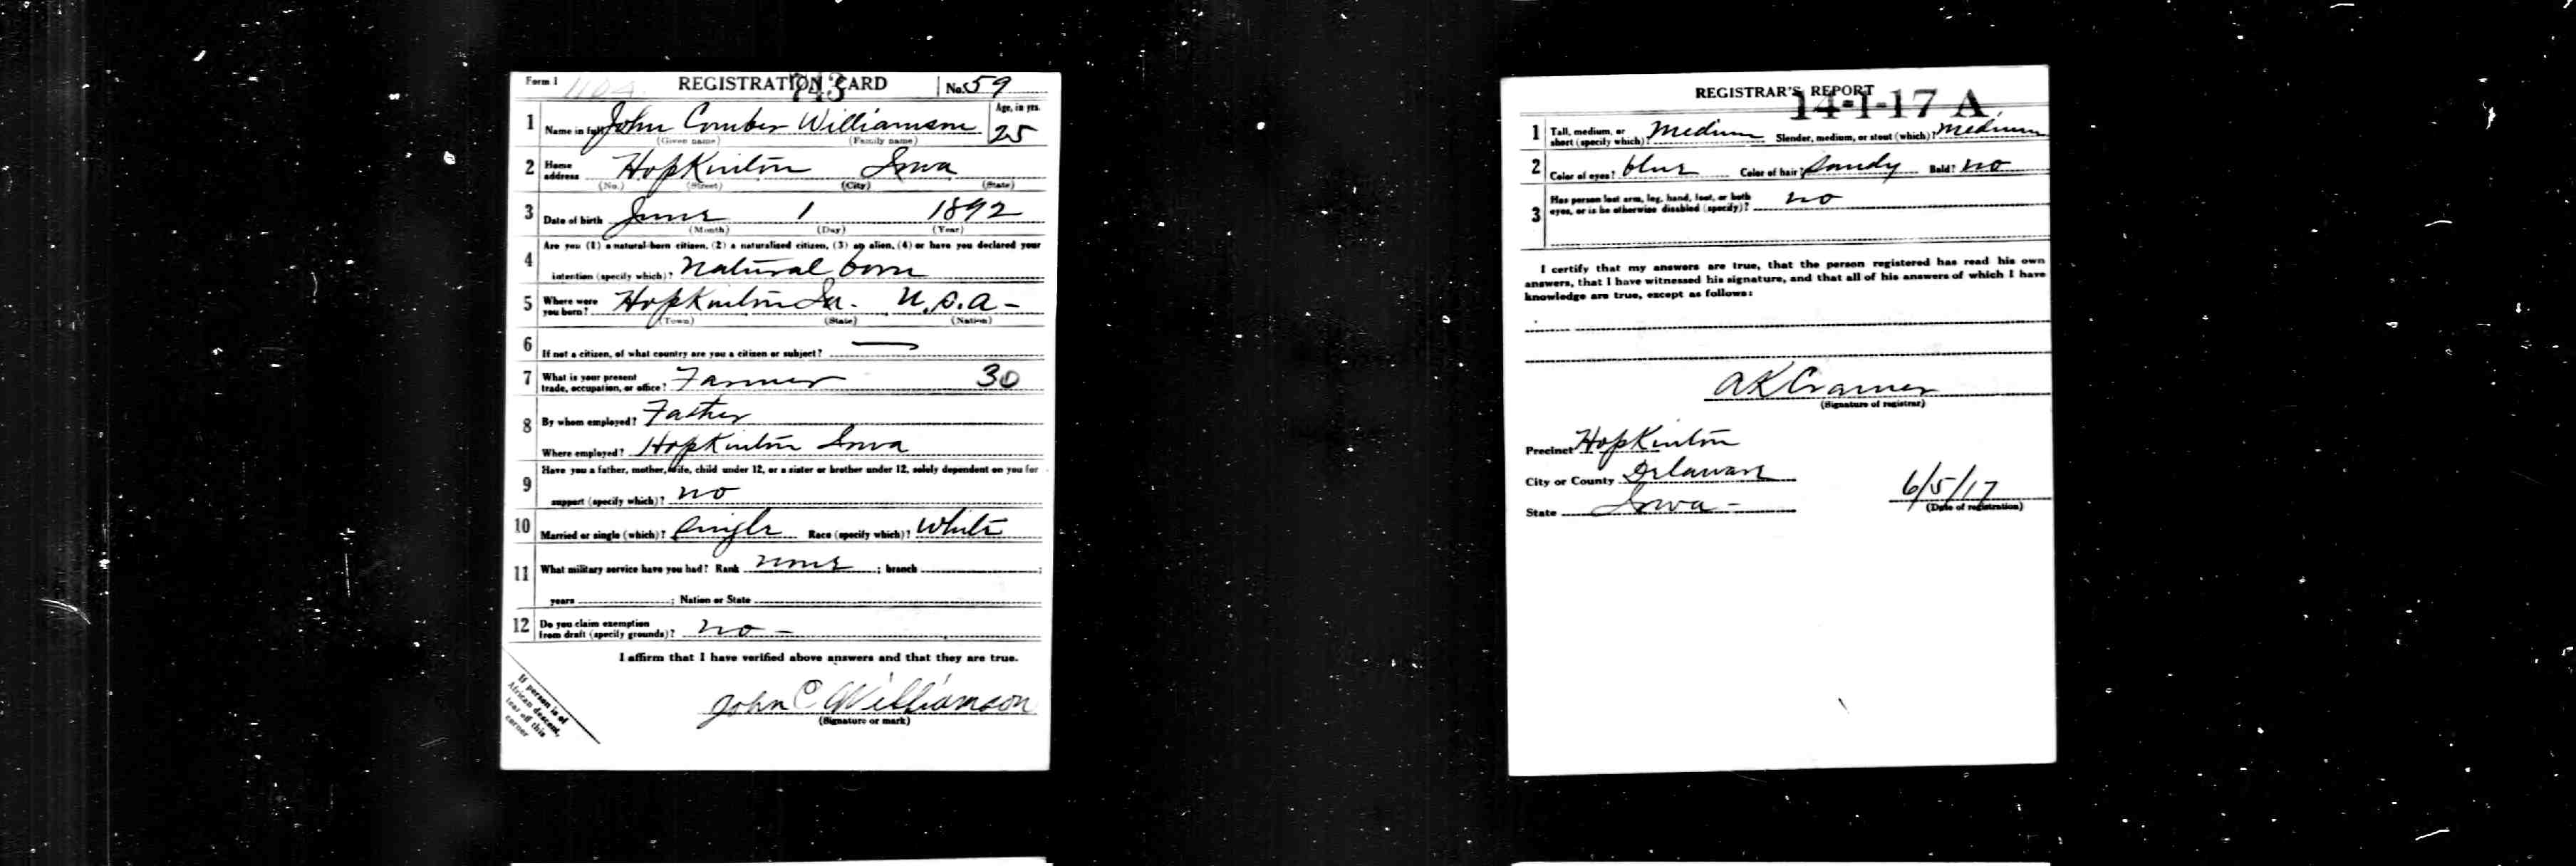 Form 1 1104 REGISTRATION CARD No. 59
743
1 Name in full John Comber Williamson Age, in yrs. 25
(Given name) (Family name)
2 Home address Hopkinton Iowa
(No.) (Street) (City) (State)
3 Date of birth June 1 1892
(Month) (Day) (Year)
4 Are you (1) a natural-born citizen, (2) a naturalized citizen, (3) an alien, (4) or have you declared your
intention (specify which)? Natural born
5 Where were you born? Hopkinton Ia. U.S.A -
(Town) (State) (Nation)
6 If not a citizen, of what country are you a citizen or subject? —
7 What is your present trade, occupation, or office? Farmer 30
8 By whom employed? Father
Where employed? Hopkinton Iowa
9 Have you a father, mother, wife, child under 12, or a sister or brother under 12, solely dependent on you for
support (specify which)? no
10 Married or single (which)? Single Race (specify which)? White
11 What military service have you had? Rank none ; branch ;
years ; Nation or State
12 Do you claim exemption from draft (specify grounds)? no -
I affirm that I have verified above answers and that they are true.
John C Williamson
(Signature or mark)
If person is of
African descent,
tear off this
corner
REGISTRAR'S REPORT
14-1-17 A
1 Tall, medium, or short (specify which)? Medium Slender, medium, or stout (which)? Medium
2 Color of eyes? blue Color of hair? Sandy Bald? no
3 Has person lost arm, leg, hand, foot, or both
eyes, or is he otherwise disabled (specify)? no
I certify that my answers are true, that the person registered has read his own
answers, that I have witnessed his signature, and that all of his answers of which I have
knowledge are true, except as follows:
A K Cramer
(Signature of registrar)
Precinct Hopkinton
City or County Delaware
State Iowa - 6/5/17
(Date of registration)